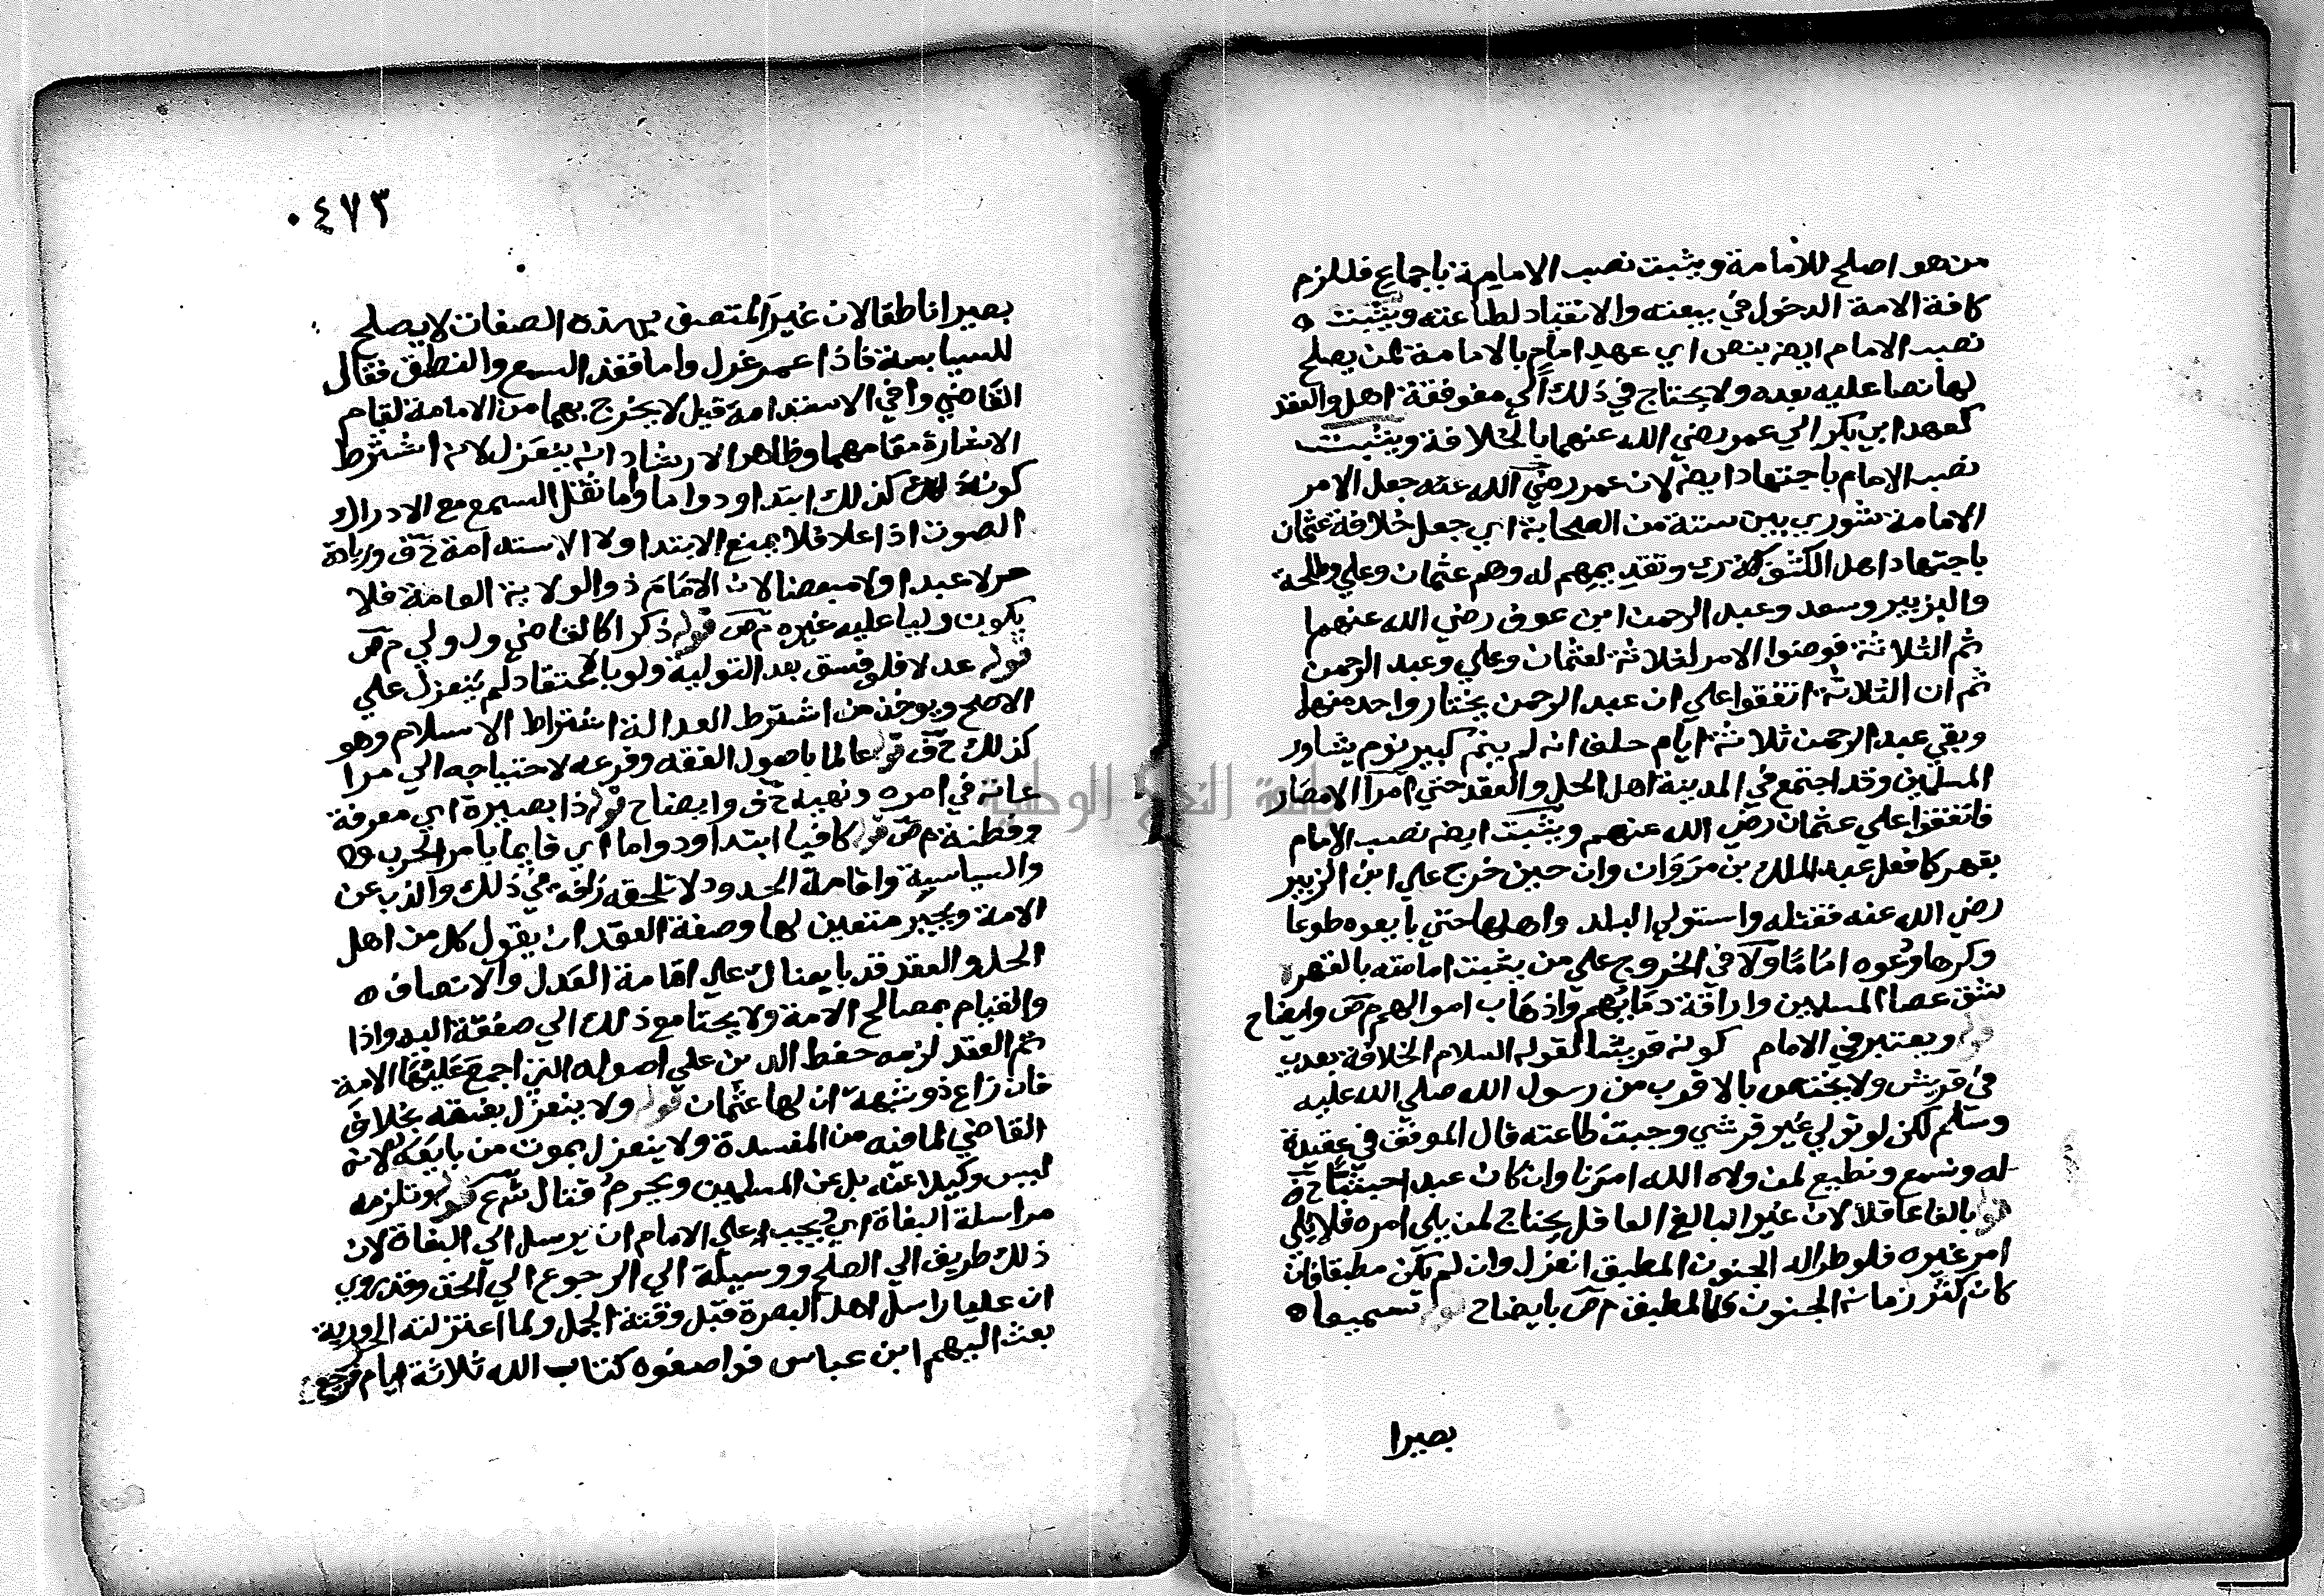 من هو اصلح للامامة ويثبت نصب الامامة باجماع فلزم
كافة الامة الدخول في بيعته والانقياد لطاعته ويثبت
نصب الامام ايض بنص اي عهد امام بالامامة لمن يصلح
لها نصا عليه بعده ولا يحتاج في ذلك الى موفقة اهل والعقد
كعهد ابي بكر الي عمر رضي الله عنهما بالخلافة ويثبت
نصب الامام باجتهاد ايض لان عمر رضي الله عنه جعل الامر
الامامة شوري بين ستة من الصحابة اي جعل خلافة عثمان
باجتهاد اهل وتقديمهم له وهم عثمان وعلي وطلحة
والزبير وسعد وعبد الرحمن ابن عوف رضي الله عنهما
ثم الثلاثة فوضوا الامر لثلاثة لعثمان وعلي وعبد الرحمن
ثم ان الثلاثة اتفقوا علي ان عبد الرحمن يختار واحد منها
وبقي عبد الرحمن ثلاثة ايام حلف انه لم ينم كبير نوم يشاور
المسلمين وقد اجتمع في المدينة اهل الحل والعقد حتي امرآ الامصار
فاتفقوا علي عثمان رضي الله عنهم ويثبت ايض نصب الامام
بقهر كما فعل عبد الملك بن مروان وان حين خرج علي ابن الزبير
رضي الله عنه فقتله واستولي البلد واهلها حتي بايعوه طوعا
وكرها ودعوه اماما ولآ في الخروج علي من يثبت امامته بالقهر
شق عصا المسلمين واراقة دمائهم واذهاب اموالهم م ص وايضاح
قوله ويعتبر في الامام كونه قريشا لقوله السلام الخلافة بعدي
في قريش ولا يختص بالاقرب من رسول الله صلي الله عليه
وسلم لكن لو تولي غير قرشي وجبت طاعته قال الموفق في عقيدة
له ونسمع ونطيع لمن ولاه الله امرنا وان كان عبد احبشيا ح
قوله بالغا عاقلا لان غير البالغ العاقل يحتاج لمن يلي امره فلا يلي
امر غيره فلو طراله الجنون المطبق انعزل وان لم يكن مطبقا فان
كان كثر زمانه الجنون فكالمطبق م ص بايضاح قوله تسميعا
بصيرا
٠٤٧٣
بصيرا ناطقا لان غير المتصف بهذه الصفات لا يصلح
للسياسة فاذا عمر غزل واما فقد السمع والنطق فقال
القاضي وافي الاستدامة قيل لا يخرج بهما من الامامة لقيام
الاشارة مقامهما وظاهر الارشاد انه ينعزل لانه اشترط
كونه كذلك ابتدا ودواما واما ثقل السمع مع الادراك
الصوت اذا علا فلا يمنع الابتدا ولا الاستدامة ح ف وزيادة
حر لا عبد اولا مبعضا لان الامام ذو الولاية العامة فلا
يكون وليا عليه غيره م ص قوله ذكرا كالقاضي ول ولي م ص
قوله عدلا فلو فسق بعد التولية ولو باعتقاد لم ينعزل علي
الاصح ويوخذ من اشترط العدالة اشتراط الاسلام وهو
كذلك ح ف قوله عالما باصول الفقه وفرعه لاحتياجه الي مرا
عاته في امره ونهيه ح ف وايضاح قوله ذا بصيرة اي معرفة
وفطنة م ص قوله كافيا ابتدا ودواما اي قايما بامر الحرب
والسياسية واقامة الحدود لا تلحقه رافه في ذلك والذب عن
الامة ويجبر متعين لها وصفة العقد ان يقول كل من اهل
الحل والعقد قد بايعناك علي اقامة العدل والانصاف
والقيام بمصالح الامة ولا يحتا مع ذلك الي صفقة اليد واذا
تم العقد لزمه حفظ الدين علي اصوله التي اجمع عليها الامة
فان زاغ ذو شبهة ان لها عثمان قوله ولا ينعزل بفسقه بخلاف
القاضي لما فيه من المفسدة ولا ينعزل بموت من بايعه لانه
ليس وكيلا عنه بل عن المسلمين ويحرم قتال ش ع قوله وتلزمه
مراسلة البغاة اي يجب علي الامام ان يرسل الي البغاة لان
ذلك طريق الي الصلح ووسيلة الي الرجوع الي الحق وقد روي
ان عليا راسل اهل البصرة قبل وقتة الجمل ولما اعتزلته الحرورية
بعث اليهم ابن عباس فواضعوه كتاب الله ثلاثة ايام فرجع